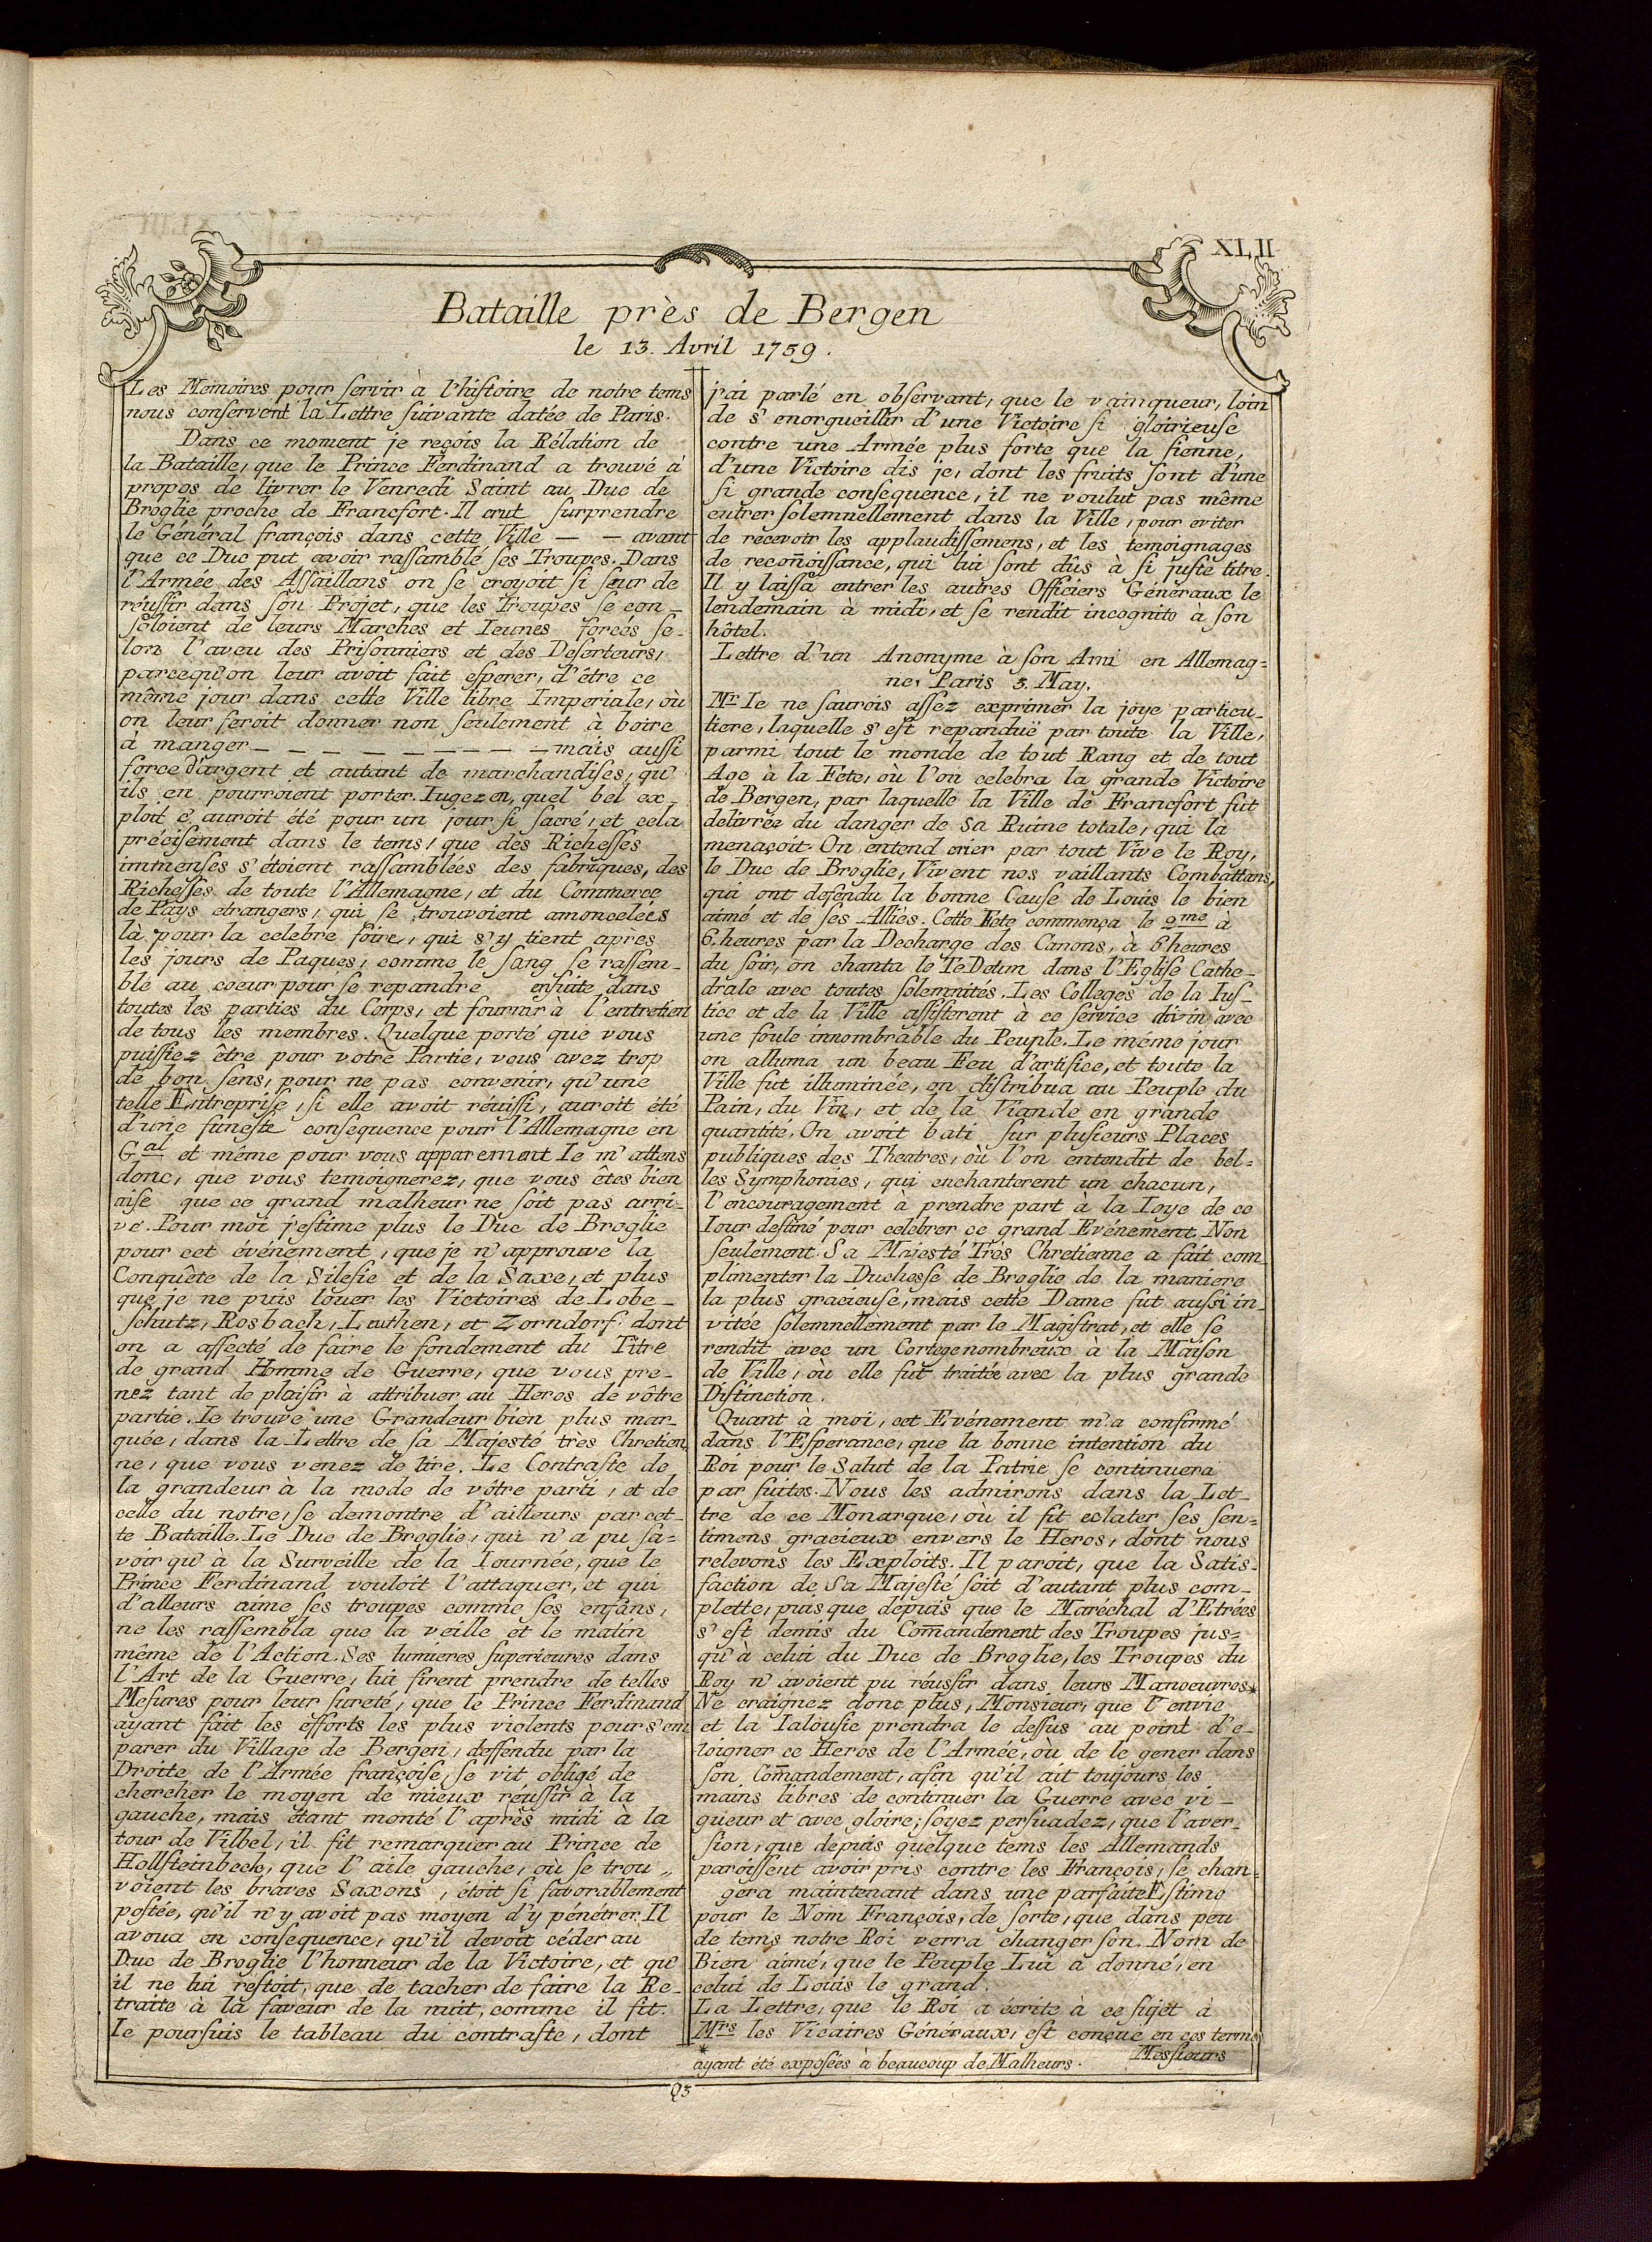 XLII
Bataille près de Bergen
le 13. Avril 1759.
Les Memoires pour servir à l'histoire de notre tems
nous conservent la Lettre suivante datée de Paris.
Dans ce moment je reçois la Rélation de
la Bataille, que le Prince Ferdinand a trouvé à
propos de livrer le Venredi Saint au Duc de
Broglie proche de Francfort. Il crut surprendre
le Général françois dans cette Ville — — avant
que ce Duc put avoir rassamblé ses Troupes. Dans
l'Armée des Assaillans on se croyoit si seur de
réussir dans son Projet, que les Troupes se con_
soloient de leurs Marches et Ieunes forcés se_
lon l'aveu des Prisonniers et des Deserteurs,
parcequ'on leur avoit fait esperer, d'être ce
même jour dans cette Ville libre Imperiale, où
on leur feroit donner non seulement à boire
à manger — — — — — — — — — mais aussi
force d'argent et autant de marchandises, qu'
ils en pourroient porter. Iugez en, quel bel ex_
ploit ç'auroit été pour un jour si sacré, et cela
précisement dans le tems, que des Richesses
immenses s'étoient rassamblées des fabriques, des
Richesses de toute l'Allemagne, et du Commerce
de Pays etrangers, qui se trouvoient amoncelées
là pour la celebre foire, qui s'y tient après
les jours de Paques, comme le sang se rassem_
ble au coeur pour se repandre ensuite dans
toutes les parties du Corps, et fournir à l'entretien
de tous les membres. Quelque porté que vous
puissiez être pour votre Partie, vous avez trop
de bon sens, pour ne pas convenir, qu'une
telle Entreprise, si elle avoit réussi, auroit été
d'une funeste consequence pour l'Allemagne en
Gal et même pour vous apparement Ie m'attens
donc, que vous temoignerez, que vous êtes bien
aise que ce grand malheur ne soit pas arri_
vé. Pour moi j'estime plus le Duc de Broglie
pour cet événement, que je n'approuve la
Conquête de la Silesie et de la Saxe, et plus
que je ne puis louer les Victoires de Lobe_
schutz, Rosbach, Leuthen, et Zorndorf. dont
on a affecté de faire le fondement du Titre
de grand Homme de Guerre, que vous pre_
nez tant de plaisir à attribuer au Heros de vôtre
partie. Ie trouve une Grandeur bien plus mar_
quée, dans la Lettre de sa Majesté très Chretien
ne, que vous venez de lire. Le Contraste de
la grandeur à la mode de vôtre parti, et de
celle du notre, se demontre d'ailleurs par cet_
te Bataille. Le Duc de Broglie, qui n'a pu sa=
voir qu'à la Surveille de la Iournée, que le
Prince Ferdinand vouloit l'attaquer, et qui
d'alleurs aime ses troupes comme ses enfans,
ne les rassembla que la veille et le matin
même de l'Action. Ses lumieres superieures dans
l'Art de la Guerre, lui firent prendre de telles
Mesures pour leur sureté, que le Prince Ferdinand
ayant fait les efforts les plus violents pour s'em
parer du Village de Bergen, deffendu par la
Droite de l'Armée françoise, se vit obligé de
chercher le moyen de mieux réussir à la
gauche, mais étant monté l'après midi à la
tour de Vilbel, il fit remarquer au Prince de
Hollsteinbeck, que l'aile gauche, où se trou „
voient les braves Saxons, étoit si favorablement
postée, qu'il n'y avoit pas moyen d'y pénétrer. Il
avoua en consequence, qu'il devoit céder au
Duc de Broglie l'honneur de la Victoire, et qu'
il ne lui restoit, que de tacher de faire la Re_
traite à la faveur de la nuit, comme il fit.
Ie poursuis le tableau du contraste, dont
j'ai parlé en observant, que le vainqueur, loin
de s'enorgueillir d'une Victoire si gloirieuse
contre une Armée plus forte que la sienne,
d'une Victoire dis je, dont les fruits sont d'une
si grande consequence, il ne voulut pas même
entrer solemnellement dans la Ville, pour eviter
de recevoir les applaudissemens, et les temoignages
de recon̄oissance, qui lui sont dûs à si juste titre.
Il y laissa entrer les autres Officiers Généraux le
lendemain à midi, et se rendit incognito à son
hôtel.
Lettre d'un Anonyme à son Ami en Allemag=
ne, Paris 3. May.
Mr Ie ne saurois assez exprimer la joye particu_
liere, laquelle s'est repanduë par toute la Ville,
parmi tout le monde de tout Rang et de tout
Age à la Fete, où l'on celebra la grande Victoire
de Bergen, par laquelle la Ville de Francfort fut
delivrée du danger de sa Ruine totale, qui la
menaçoit. On entend crier par tout Vive le Roy,
le Duc de Broglie, Vivent nos vaillants Combattans,
qui ont defendu la bonne Cause de Louis le bien
aimé et de ses Alliés. Cette Fete commença le 2me à
6. heures par la Decharge des Canons, à 6 heures
du soir, on chanta le Te Deum dans l'Eglise Cathe_
drale avec toutes solemnités. Les Colleges de la Ius_
tice et de la Ville assisterent à ce service divin avec
une foule innombrable du Peuple. Le méme jour
on alluma un beau Feu d'artifice, et toute la
Ville fut illuminée, on distribua au Peuple du
Pain, du Vin, et de la Viande en grande
quantité. On avoit bati sur plusieurs Places
publiques des Theatres, où l'on entendit de bel=
les Symphonies, qui enchanterent un chacun,
l'encouragement à prendre part à la Ioye de ce
Iour destiné pour celebrer ce grand Evénement. Non
seulement Sa Majesté Très Chretienne a fait com_
plimenter la Duchesse de Broglie de la maniere
la plus gracieuse, mais cette Dame fut aussi in_
vitée solemnellement par le Magistrat, et elle se
rendit avec un Cortege nombreux à la Maison
de Ville, où elle fut traitée avec la plus grande
Distinction.
Quant à moi, cet Evénement m'a confirmé
dans l'Esperance, que la bonne intention du
Roi pour le Salut de la Patrie se continuera
par suites. Nous les admirons dans la Let_
tre de ce Monarque, où il fit eclater ses sen=
timens gracieux envers le Heros, dont nous
relevons les Exploits. Il paroit, que la Satis=
faction de Sa Majesté soit d'autant plus com_
plette, puis que depuis que le Maréchal d'Etrées
s'est demis du Com̄andement des Troupes jus=
qu'à celui du Duc de Broglie, les Troupes du
Roy n'avoient pu réussir dans leurs Manoeuvres*
Ne craignez donc plus, Monsieur, que l'envie
et la Ialousie prendra le dessus au point d'e_
loigner ce Heros de l'Armée, où de le gener dans
son Com̄andement, afin qu'il ait toujours les
mains libres de continuer la Guerre avec vi_
gueur et avec gloire; soyez persuadez, que l'aver_
sion, que depuis quelque tems les Allemands
paroissent avoir pris contre les François, se chan=
gera maintenant dans une parfaite Estime
pour le Nom François, de sorte, que dans peu
de tems notre Roi verra changer son Nom de
Bien aimé, que le Peuple Lui a donné, en
celui de Louis le grand.
La Lettre, que le Roi a écrite à ce sujet à
Mrs les Vicaires Généraux, est conçue en ces terme
* ayant été exposées à beaucoup de Malheurs. Messieurs
Q3